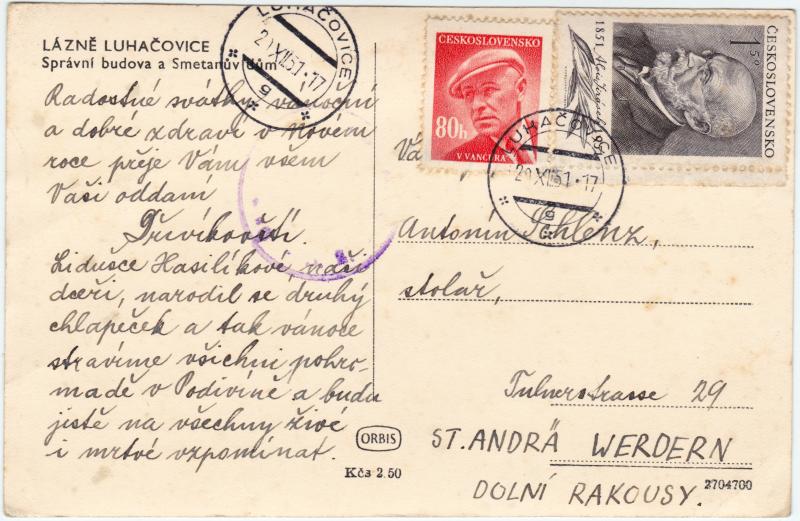 LÁZNĚ LUHAČOVICE
Správní budova a Smetanův dům
Radostné svátky vánoční
a dobré zdraví v novém
roce přeje Vám všem
Vaši oddam
Dřevíkovští.
Lidušce Hasilíkové, naší
dceři, narodil se druhý
chlapeček a tak vánoce
strávíme všichni pohro-
madě v Podivíně a budu
jistě na všechny živé
i mrtvé vzpomínat.
ORBIS
Kčs 2.50
LUHAČOVICE
20.XII.51-17
g
ČESKOSLOVENSKO
80h
V. VANČURA
1851
ČESKOSLOVENSKO
1 50
LUHAČOVICE
20.XII.51-17
g
Vá
Antonín Schlenz,
stolař,
Tulnerstrasse 29
ST. ANDRÄ WERDERN
DOLNÍ RAKOUSY.
2704700